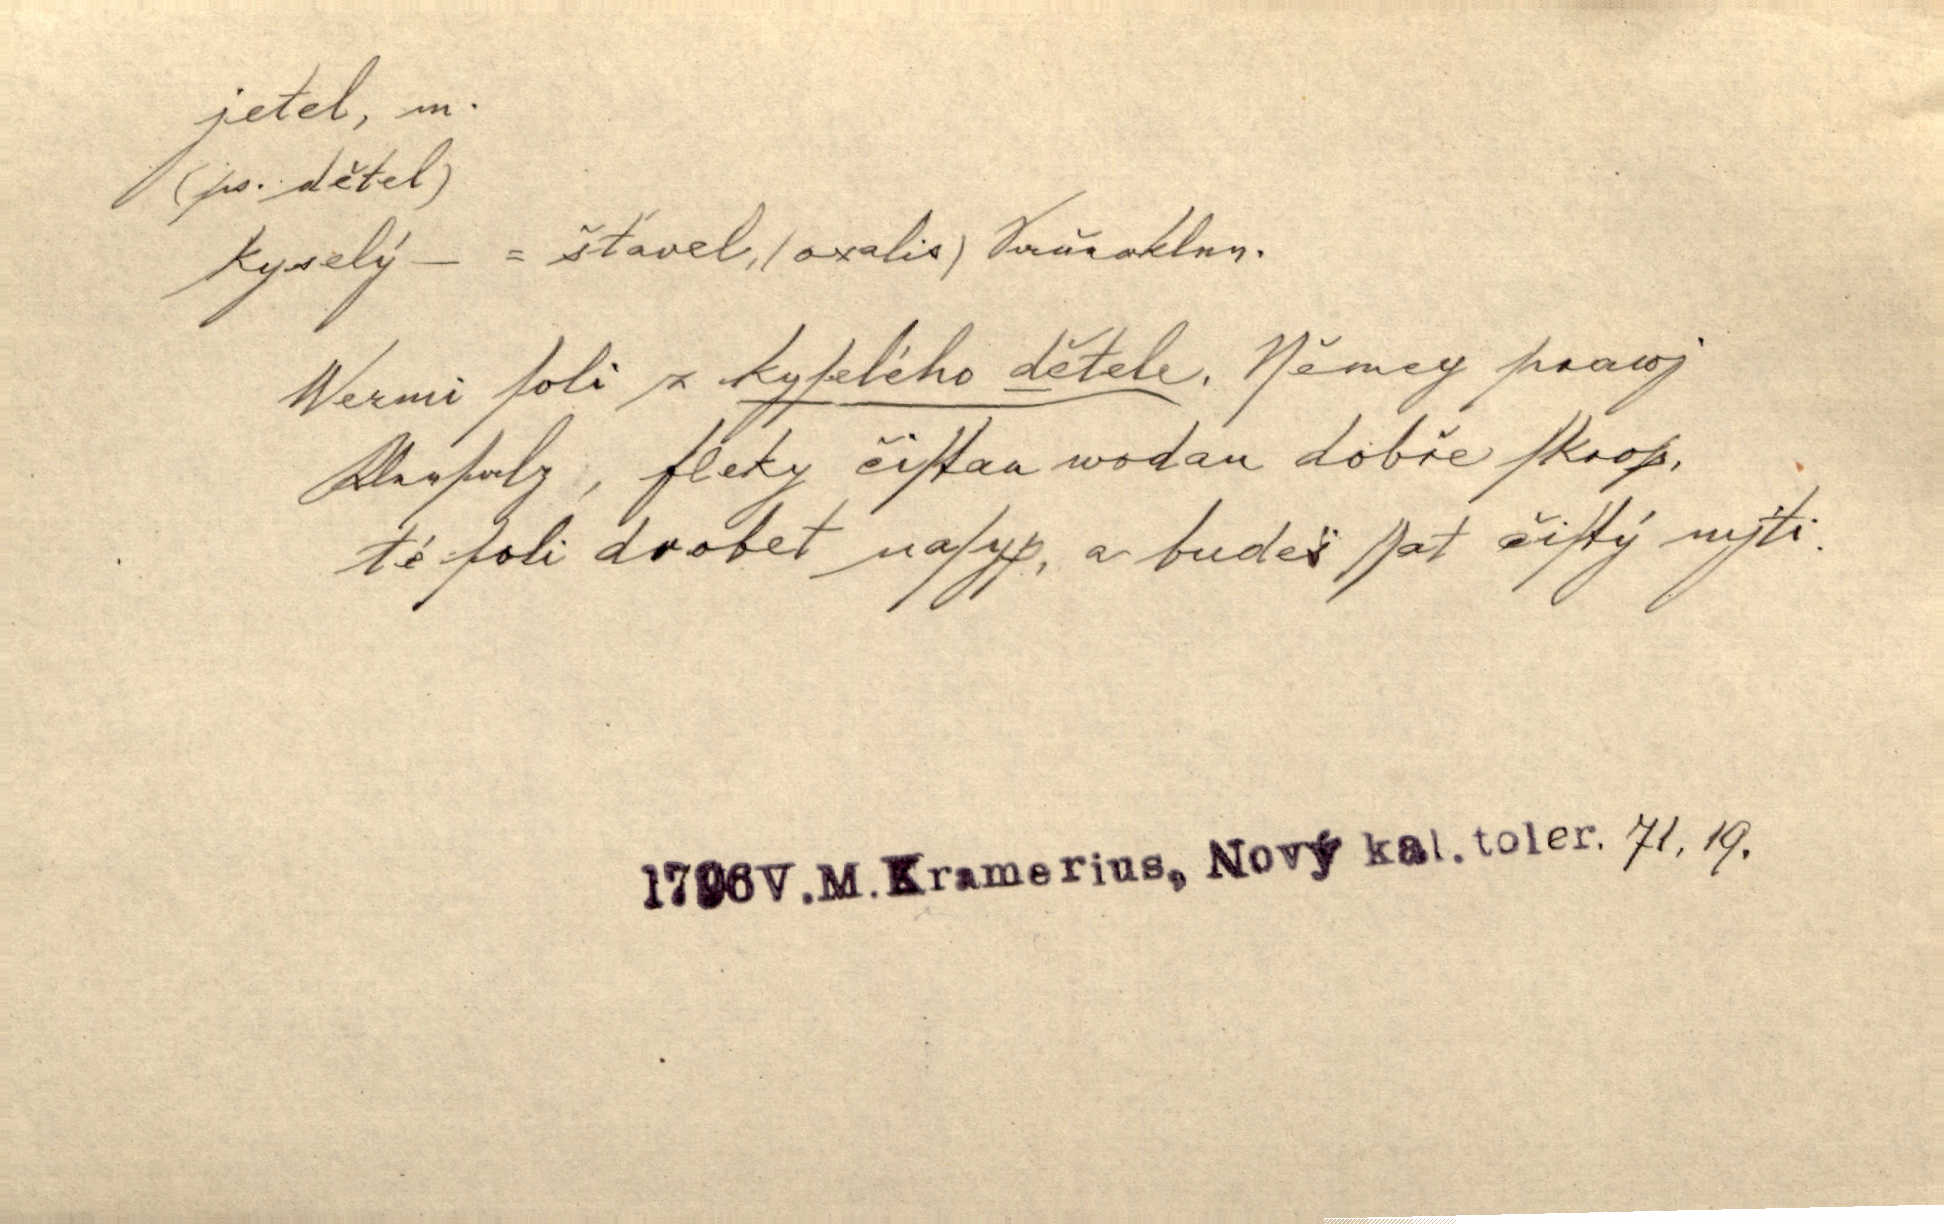 jetel, m.
(ps. dětel)
kyselý — = šťavel, (oxalis)
Wezmi ſoli z kyſelého dětele, Němcy prawj
, fleky čiſtau wodau dobře ſkrop,
té ſoli drobet naſyp, a budeš ſſat čiſtý mjti.
1796 V.M.Kramerius, Nový kal.toler. 71, 19.